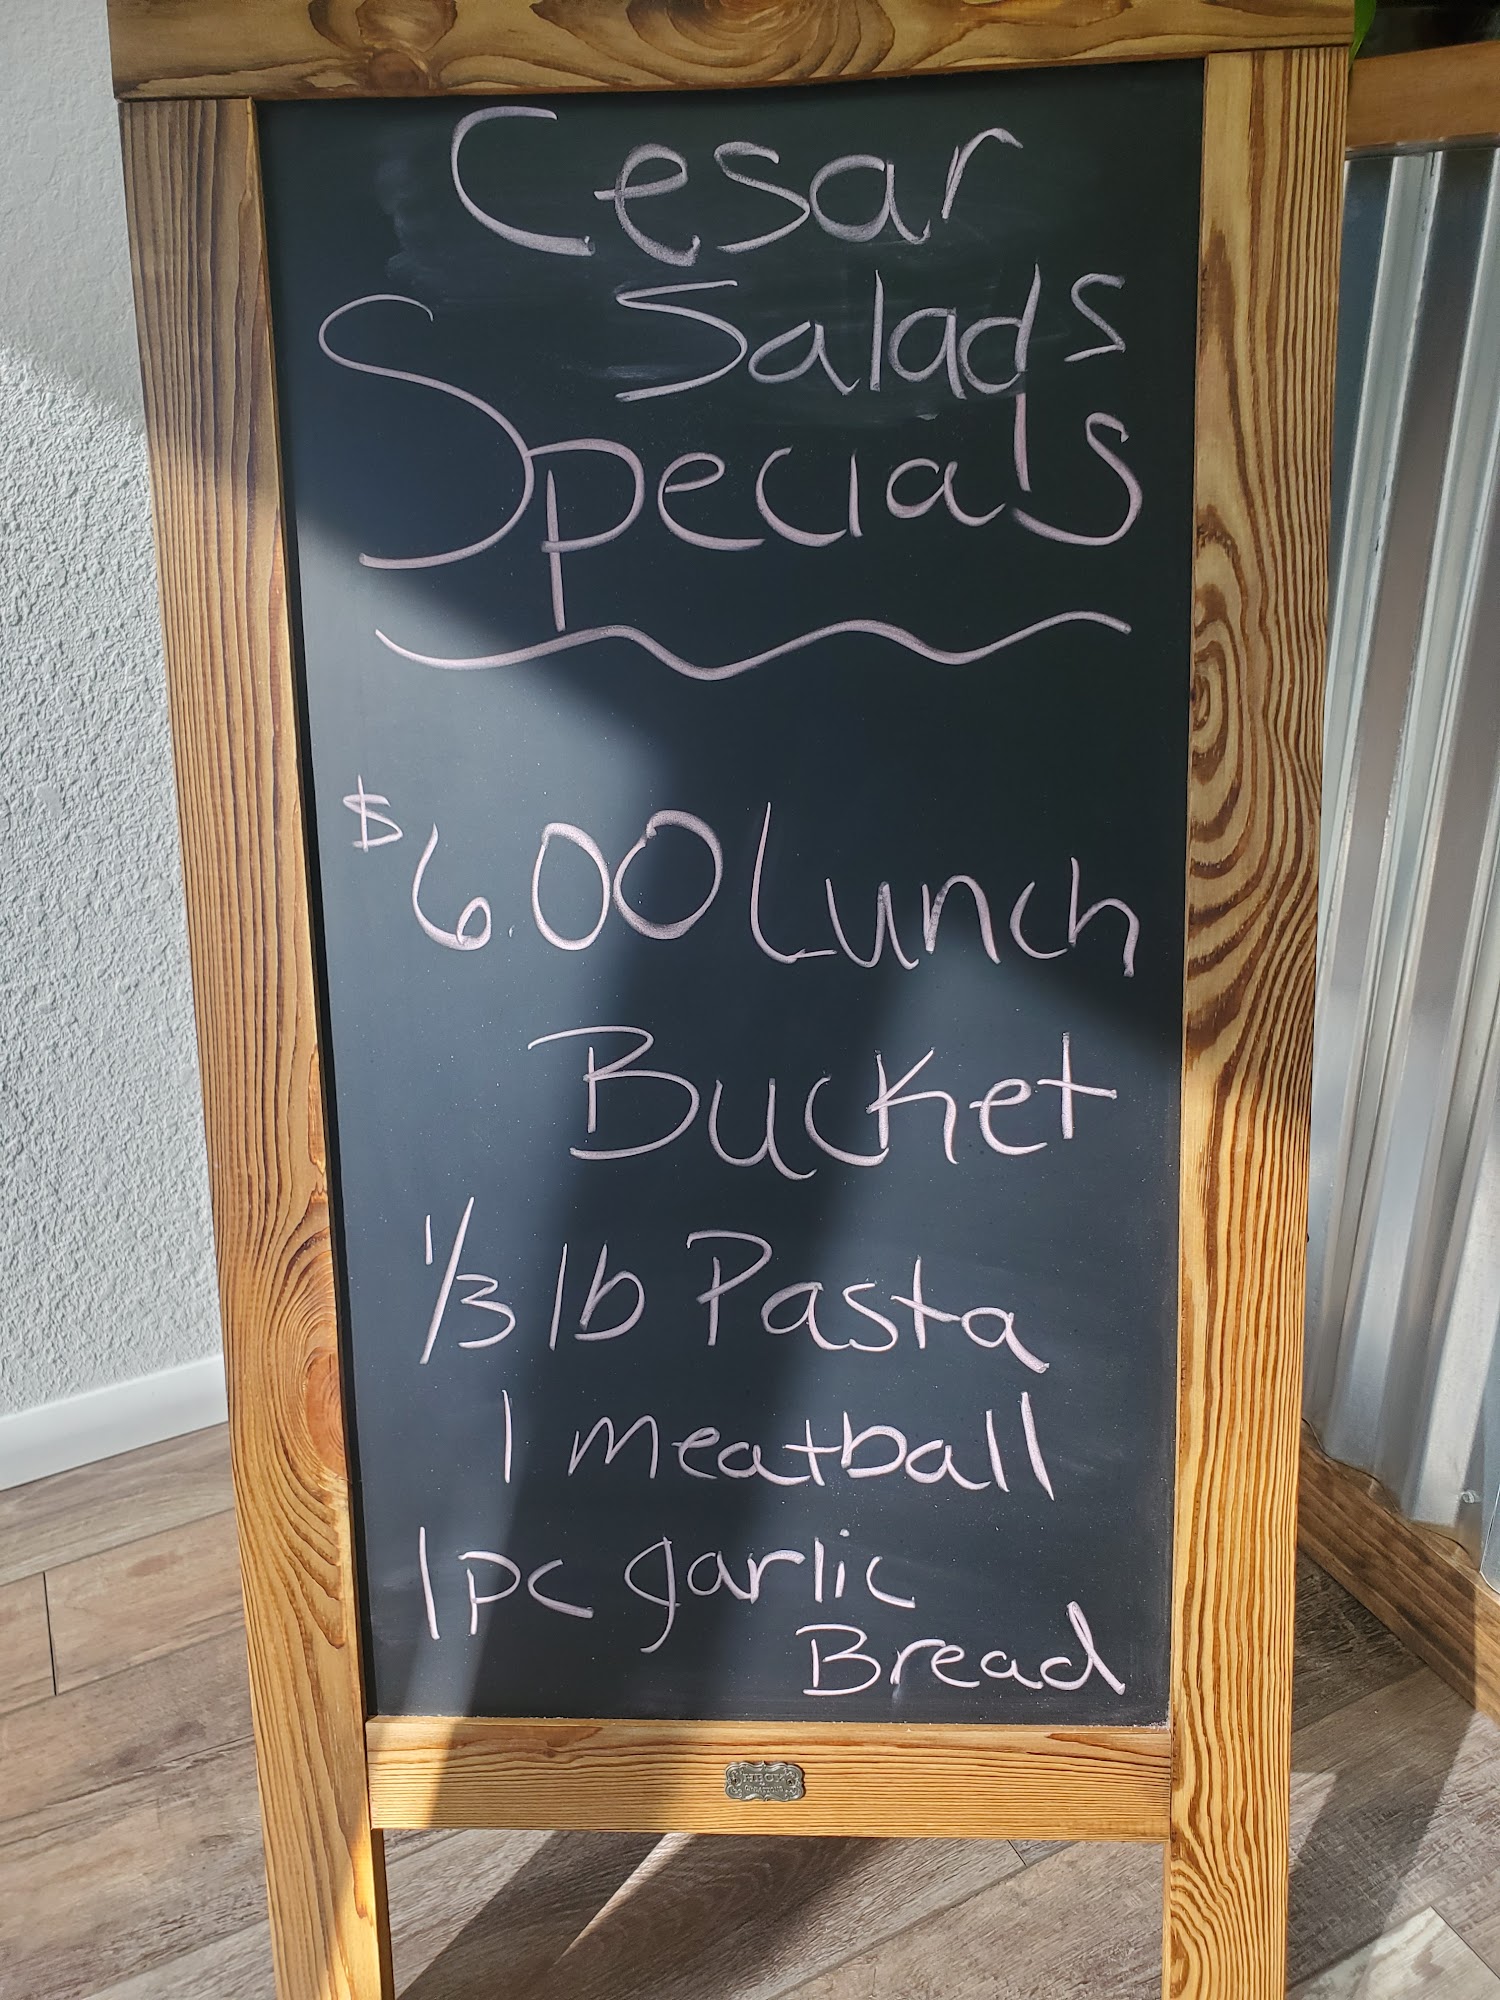 Cesar
Salads
Specials
$6.00 Lunch
Bucket
1/3 lb Pasta
1 meatball
1 pc garlic
Bread